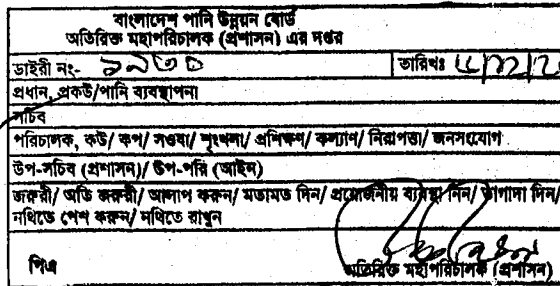 বাংলাদেশ পানি উন্নয়ন বোর্ড
অতিরিক্ত মহাপরিচালক (প্রশাসন) এর দপ্তর
ডাইরী নং- ১৯৩০ তারিখঃ
প্রধান, প্রকউ/পানি ব্যবস্থাপনা
সচিব
পরিচালক, কউ/ কপ/ সওব্য/ শৃংখলা/ প্রশিক্ষণ/ কল্যাণ/ নিরাপত্তা/ জনসংযোগ
উপ-সচিব (প্রশাসন)/ উপ-পরি (আইন)
জরুরী/ অতি জরুরী/ আলাপ করুন/ মতামত দিন/ প্রয়োজনীয় ব্যবস্থা নিন/ তাগাদা দিন/
নথিতে পেশ করুন/ নথিতে রাখুন
পিএ
অতিরিক্ত মহাপরিচালক (প্রশাসন)